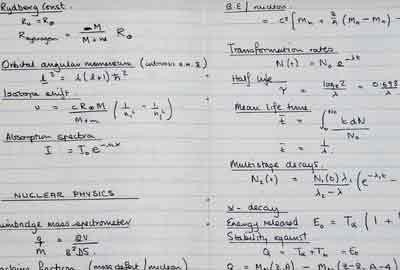 Rydberg Const.
R∞ = R∞
R hydrogen = M / M + m R∞
Orbital angular momentum (intrinsic
l² = l(l+1)ħ²
Isotope shift.
υ = cR∞M / M+m (1/n₁² − 1/n₂²)
Absorption spectra
I = I₀e
NUCLEAR PHYSICS
mass spectrometer
q/m = 2V / B²DS
fraction (mass defect / nucleon)
B.E / nucleon
= c² [Mn + z/A (MH − Mn) −
Transformation rates
N(t) = N₀ e^-λt
Half life
τ = loge2 / λ = 0.693
Mean life time
t̄ = ∫ t dN / N₀
t̄ = 1/λ
Multistage decays.
N₂(t) = N₁(0) λ₁ / λ₂ − λ₁ (e^-λ₁t −
α - decay
Energy released E₀ = Tα (1 +
Stability against
Q = Tα + Tb = E₀
Q = M (Z,A) − M (Z-2, A-4)